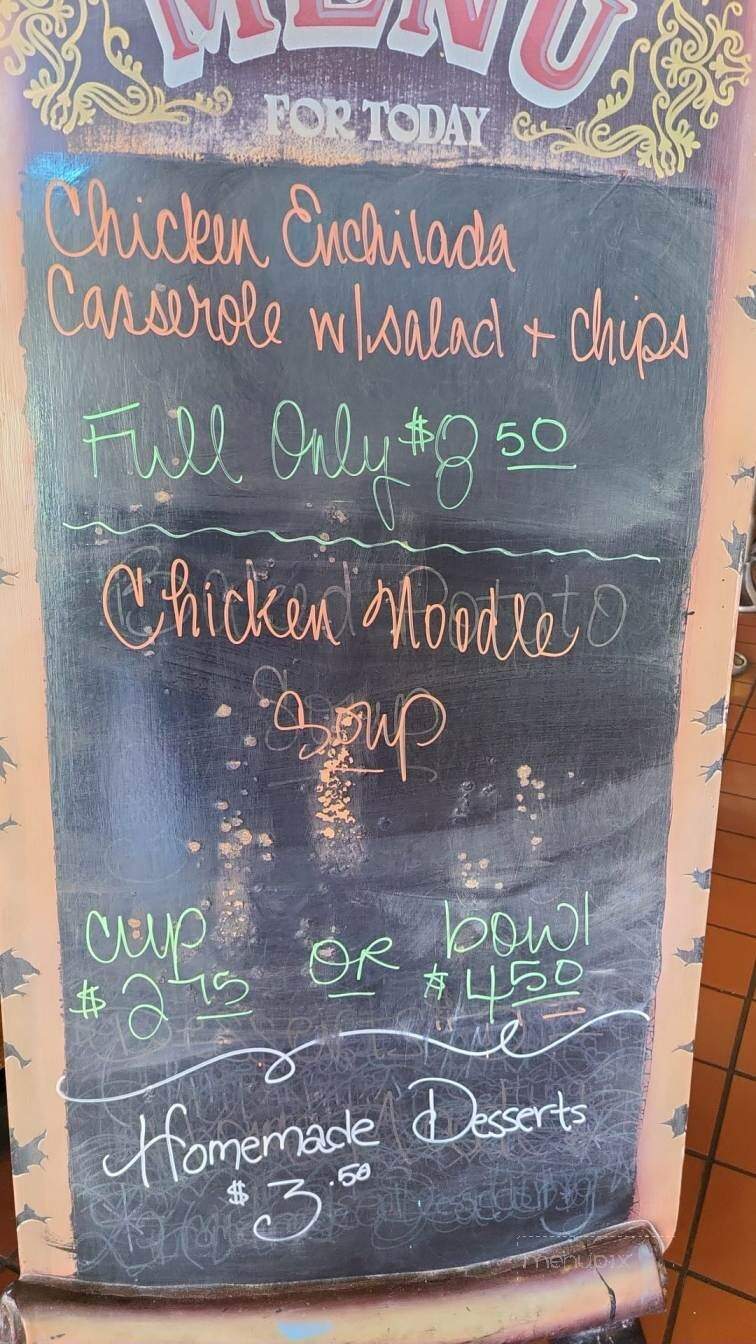 MENU
FOR TODAY
Chicken Enchilada
Casserole w/salad + chips
Full Only $8 50
Chicken Noodle
Soup
cup OR bowl
$2 75 $4 50
Homemade Desserts
$3.50
menupix